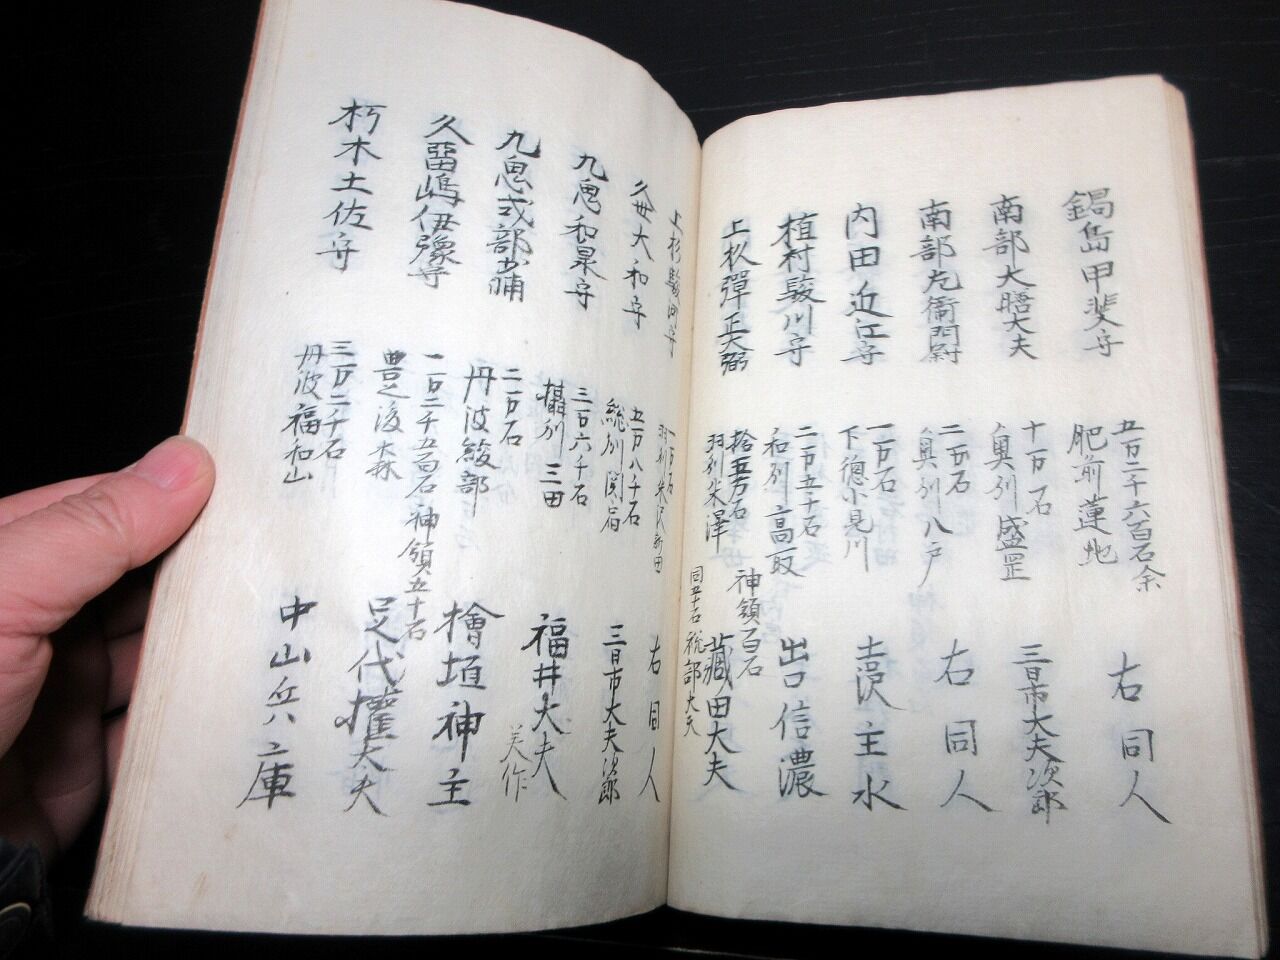 鍋島甲斐守
五万二千六百石余
肥前蓮池
右同人
南部大膳大夫
十万石
奥州盛岡
三日市大夫次郎
南部左衛門尉
二万石
奥州八戸
右同人
内田近江守
一万石
下総小見川
主水
植村駿川守
二万五千石
和州高取
出口信濃
上杦彈正大弼
拾五万石
羽州米澤
神領百石
蔵田大夫
同五十石
税部大夫
上杉駿河守
一万石
羽州米沢新田
右同人
久世大和守
五万八千石
総州関宿
三日市大夫次郎
九鬼和泉守
三万六千石
攝州三田
福井大夫
美作
九鬼式部少輔
二万石
丹波綾部
檜垣神主
久留嶋伊豫守
一万二千五百石
豊之後森
神領五十石
足代權大夫
朽木土佐守
三万二千石
丹波福知山
中山兵庫